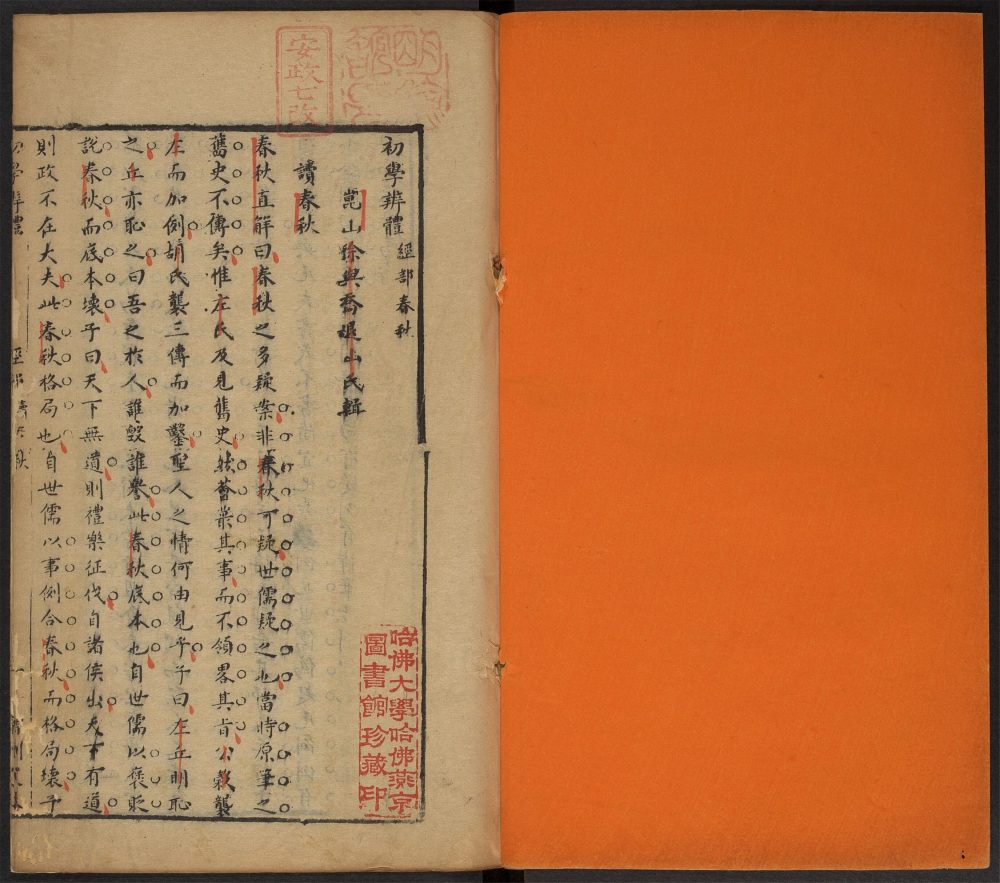 初學辨體 經部春秋
崑山徐與喬退山氏輯
讀春秋
春秋直解曰春秋之多疑案非春秋可疑世儒疑之也當時原筆之
舊史不傳矣惟左氏及見舊史然薈蕞其事而不領畧其旨公穀襲
左而加例胡氏襲三傳而加鑿聖人之情何由見乎子曰左丘明恥
之丘亦恥之曰吾之於人誰毀誰譽此春秋底本也自世儒以褒貶
說春秋而底本壞子曰天下無道則禮樂征伐自諸侯出天下有道
則政不在大夫此春秋格局也自世儒以事例合春秋而格局壞子
初學辨體
安政七改
哈佛大學哈佛燕京
圖書館珍藏印